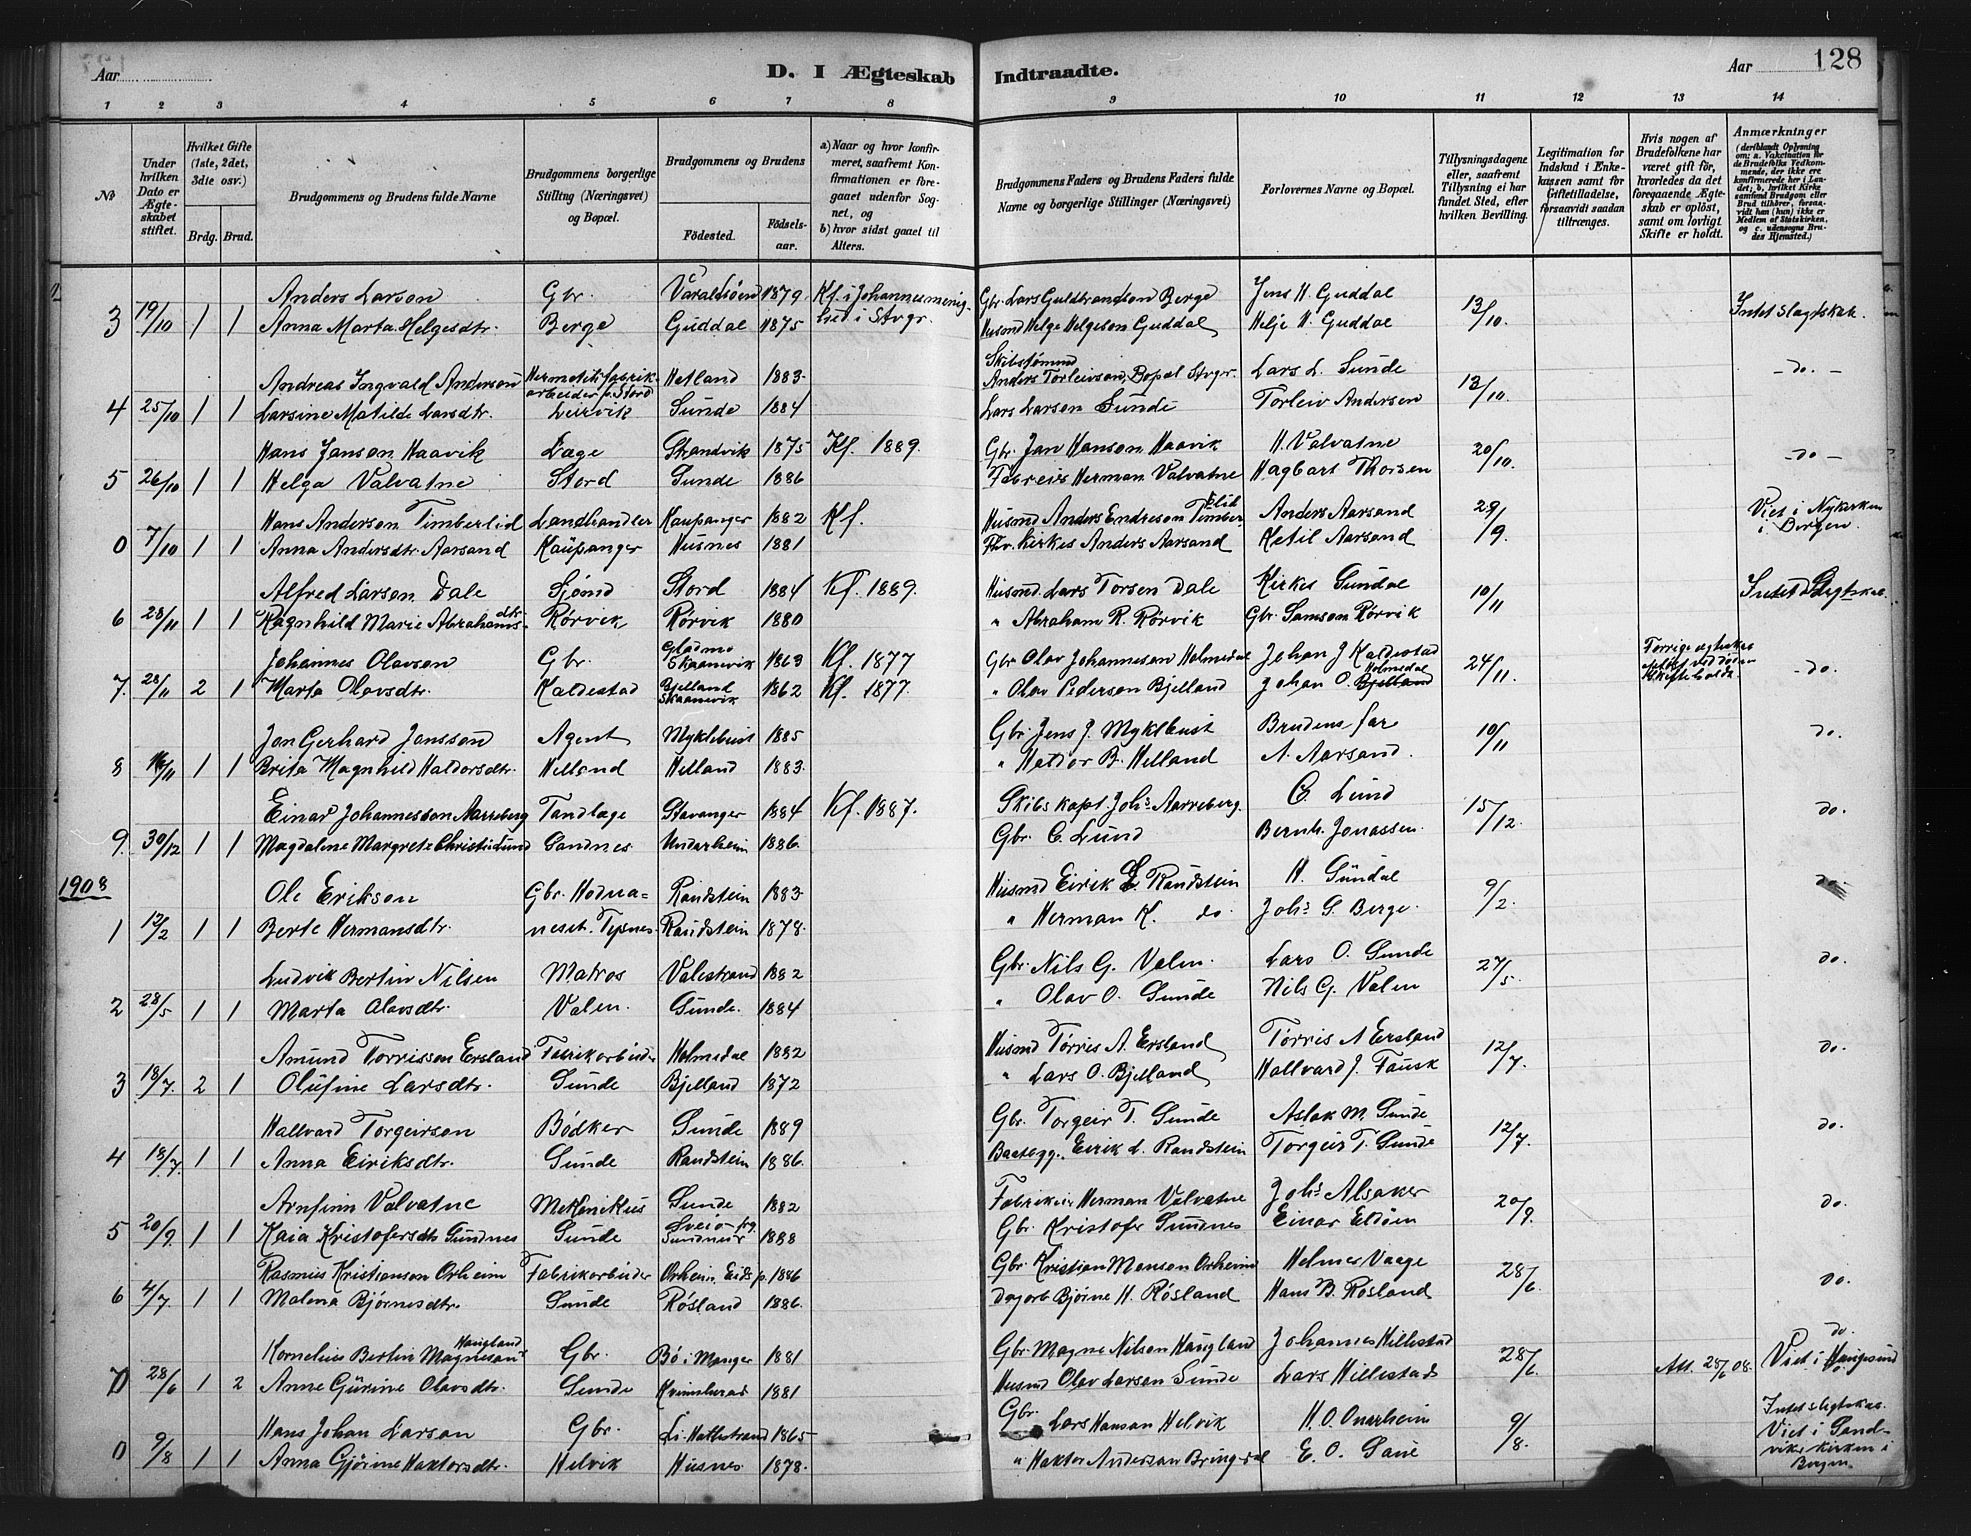 Aar
D. I Ægteskab Indtraadte.
Aar 128
1 2 3 4 5 6 7 8 9 10 11 12 13 14
№
Under hvilken Dato er Ægteskabet stiftet.
Hvilket Gifte (1ste, 2det, 3die osv.)
Brdg. Brud.
Brudgommens og Brudens fulde Navne
Brudgommens borgerlige Stilling (Næringsvei) og Bopæl.
Brudgommens og Brudens
Fødested. Fødselsaar.
a) Naar og hvor konfirmeret, saafremt Konfirmationen er foregaaet udenfor Sognet, og
b) hvor sidst gaaet til Alters.
Brudgommens Faders og Brudens Faders fulde Navne og borgerlige Stillinger (Næringsvei)
Forlovernes Navne og Bopæl.
Tillysningsdagene eller, saafremt Tillysning ei har fundet Sted, efter hvilken Bevilling.
Legitimation for Indskud i Enkekassen samt for Giftetilladelse, forsaavidt saadan tiltrænges.
Hvis nogen af Brudefolkene har været gift før, hvorledes da det foregaaende Ægteskab er opløst, samt om lovligt Skifte er holdt.
Anmærkninger
(deriblandt Oplysning om: a. Vakcination for de Brudefolks Vedkommende, der ikke ere konfirmerede her i Landet; b. hvilket Kirkesamfund Brudgom eller Brud tilhører, forsaavidt han (hun) ikke er Medlem af Statskirken, og c. udensogns Brudes Hjemsted.)
Anders Larson Gbr. Varaldsøen 1879 Kf. i Johannesmenig- Gbr. Lars Guldbrandson Berge Jens H. Guddal
3 19/10 1 1 Anna Marta Helgesdtr. Berge Guddal 1875 hed i Stvgr. Husmd Helge Helgeson Guddal Helje H. Guddal 13/10. Intet slagtskab.
Andreas Ingvald Anderson Hermetikfabrik- Hetland 1883 Skibstømmd Anders Torleivson, Bopæl Stvgr. Lars L. Sunde -do.-
4 25/10 1 1 Larsine Matilde Larsdtr. arbeider p. Stord Leirvik Sunde 1884 Lars Larson Sunde Torleiv Andersen 13/10.
Hans Janson Haavik Læge Strandvik 1875 Kf. 1889. Gbr. Jan Hanson Haavik H. Valvatne
5 26/10 1 1 Helga Valvatne Stord Sunde 1886 Fabreier Herman Valvatne Hagbart Thorsen 20/10. -do-
Hans Anderson Timberlid Landhandler Kaupanger 1882 Kf. Husmd Anders Endreson Timberlid Anders Aarsand Viet i Nykirken
0 7/10 1 1 Anna Andersdtr. Aarsand Kaupanger Husnes 1881 Fhv. kirkes. Anders Aarsand Ketil Aarsand 29/9. i Bergen.
Alfred Larson Dale Sjømd Stord 1884 Kf. 1889. Husmd Lars Torsen Dale Kirkes Sundal
6 28/11 1 1 Ragnhild Marie Abrahamsdtr. Rørvik Rørvik 1880 " Abraham R. Rørvik Gbr. Samson Rørvik 10/11
Johannes Olavson Gbr. Skaanevik 1863 Kf. 1877 Gbr Olav Johanneson Holmedal Johan J Kaldestad
7. 28/11 2 1 Marta Olavsdtr. Kaldestad Bjelland Skaanevik 1862 Kf. 1877. " Olav Pederson Bjelland Johan O. Holmedal 24/11. -do.
Jon Gerhard Jansson Agent Myklebust 1885 Gbr. Jens J. Myklebust Brudens far
8 16/11 1 1 Brita Magnhild Haldorsdtr. Helland Helland 1883. " Haldor B. Helland A. Aarsand. 10/11 do.
Einar Johannesson Aarreberg Tandlæge Stavanger 1884 Kf. 1887. Skibskapt. Johs Aarreberg. C. Lund
9. 30/12 1 1 Magdalene Margrete Christie Lund Sandnes Undarheim 1886. Gbr. C. Lund Bernh. Jonassen. 15/12. do.
1908
Ole Erikson Gbr. Hodna- Randstein 1883 Husmd Eirik L. Randstein H. Sundal
1 12/2 1 1 Berte Hermansdtr. neset. Tysnes Randstein 1878. " Herman K. do. Johs S. Berge. 9/2. do.
Ludvik Bertin Nilsen Matros Valestrand 1882 Gbr. Nils G. Valen. Lars O. Sunde
2 28/5 1 1 Marta Olavsdtr. Valen. Sunde. 1884 " Olav O. Sunde Nils G. Valen 27/5. do.
Amund Torrisson Ersland Fabrikarbeider Holmedal 1882 Husmd Tørris A. Ersland Tørris A Ersland
3 18/7. 2 1 Olufine Larsdtr. Sunde Bjelland 1872 " Lars O. Bjelland Hallvard J. Fausk 12/7. do.
Hallvard Torgeirson Bødker Sunde 1889 Gbr. Torgeir T. Sunde Aslak M. Sunde
4 18/7. 1 1 Anna Eiriksdtr. Sunde Randstein 1886. Baatbygg. Eirik L. Randstein Torgeir T. Sunde 12/7. do.
Arnfinn Valvatne Mekanikus Sunde 1882 Fabrikeier Herman Valvatne Johs Alsaker
5 20/9. 1 1 Kaia Kristofersdtr Sundnes Sunde Sveio 1888 Gbr. Kristofer Sundnes Einar Eldøen 20/9. do.
Rasmus Kristianson Orheim Fabrikarbeider Orheim. Eids p. 1886 Gbr. Kristian Monson Orheim Helmer Vaage
6 4/7. 1 1 Malena Bjørnesdtr. Sunde Røsland 1886. Dagarb Bjørne H. Røsland Hans B. Røsland 28/6. do.
Kornelius Bertin Magneson Haugland Gbr. Bø i Manger 1881 Gbr. Magne Nilson Haugland Johannes Hillestad do.
0 28/6 1 2 Anne Gurine Olavsdtr. Sunde Kvinnherad 1881 Husmd Olav Larson Sunde Lars Hillestad 28/6. Att. 28/6 08. Viet i Haugesund
Hans Johan Larson Gbr. Li. Hatlestrand 1865 Gbr. Lars Hanson Helvik H. O. Onarheim Intet slegtskab.
0 9/8 1 1 Anna Gjørine Haktorsdtr. Helvik Husnes 1878. " Haktor Anderson Bringedal E. O. Sane 9/8. Viet i Sandvikskirken i Bergen